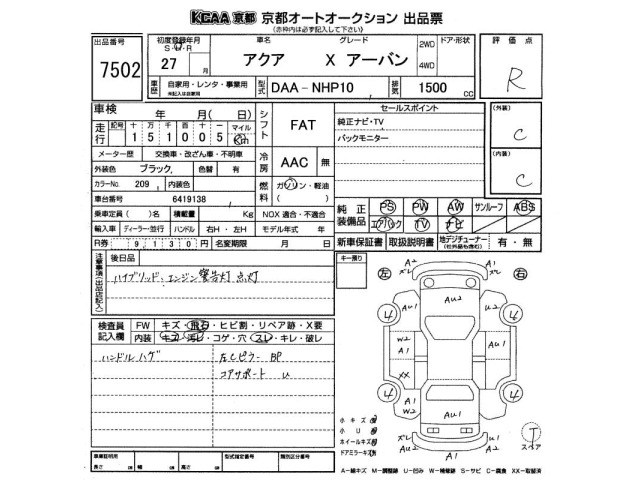 KCAA 京都 京都オートオークション 出品票
(赤枠内は必ず記入して下さい)
出品番号
7502
初度登録年月
S・H・R
27 月
車名 グレード
アクア X アーバン
2WD
4WD
ドア・形状
評価点
R
車歴 自家用・レンタ・事業用
未記入は自家用
型式 DAA-NHP10
排気 1500 cc
車検 年 月( 日)
走行 記号 十 万 千 百 十 マイル
151005 Km
メーター歴 交換車・改ざん車・不明車
外装色 ブラック, 色替 有
カラーNo. 209, 内装色
車台番号 6419138
乗車定員 ( )名 積載量 Kg
輸入車 ディーラー・並行 ハンドル 右H・左H
R券 9,130 円 名変期限 月 日
シフト FAT
冷房 AAC 無
燃料 ガソリン・軽油
( )
NOX 適合・不適合
モデル年式 年
セールスポイント
純正ナビ・TV
バックモニター
(外装)
C
(内装)
C
純正装備品 PS PW AW サンルーフ ABS
エアバック TV ナビ
新車保証書 取扱説明書 地デジチューナー 有・無
(社外品も含む)
注意事項(出品店記入)
後日品
ハイブリッド・エンジン警告灯 点灯
キー預り
検査員記入欄
FW キズ・飛石・ヒビ割・リペア跡・X要
内装 キズ・汚レ・コゲ・穴・スレ・キレ・破レ
ハンドルハゲ 左Cピラー BP
コアサポート U
左 右
A2 ズレ
ズレ A2
AU2
4 4
W2
A1
A1
AU1
XX
A1
4 4
A1
W2
AU1
ズレ
AU2
AU1
小キズ
小U
ホイールキズ
ドアミラーキズ
T
スペア
車両証明用
長さ cm 幅 cm 高さ cm
型式指定番号 類別区分番号
A-線キズ M-調整跡 U-凹み W-補修跡 S-サビ C-腐食 XX-取替済